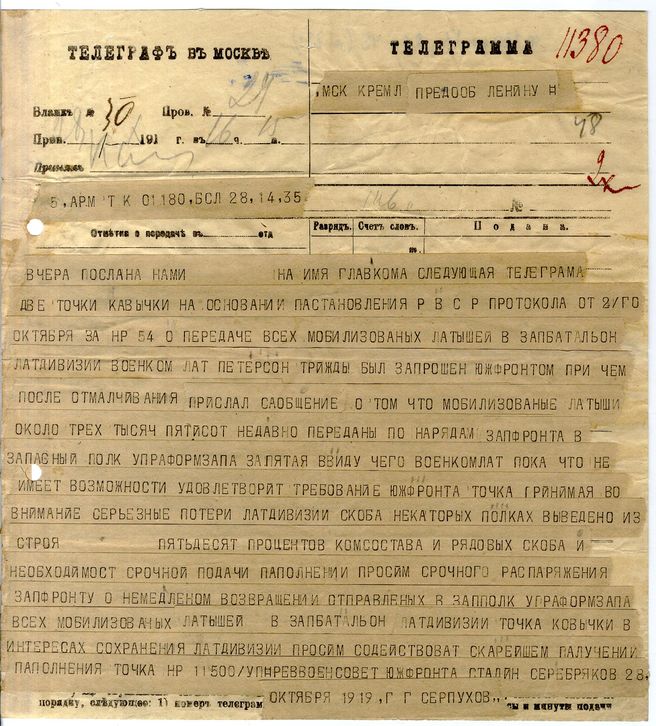 ТЕЛЕГРАФЪ ВЪ МОСКВѢ
ТЕЛЕГРАММА
11380
МСК КРЕМЛ ПРЕДООБ ЛЕНИНУ
Бланкъ № 30 Пров. № 29
48
Прин. 191 г. въ 16 ч. 15 м.
Принялъ
5, АРМ ТК 01180, БСЛ 28, 14.35
№
Отмѣтка о передачѣ въ отд
Разрядъ. Счетъ словъ. Подача.
м.
ВЧЕРА ПОСЛАНА НАМИ НА ИМЯ ГЛАВКОМА СЛЕДУЮЩАЯ ТЕЛЕГРАМА
ДВЕ ТОЧКИ КАВЫЧКИ НА ОСНОВАНИИ ПАСТАНОВЛЕНИЯ Р В С Р ПРОТОКОЛА ОТ 2/ГО
ОКТЯБРЯ ЗА НР 54 О ПЕРЕДАЧЕ ВСЕХ МОБИЛИЗОВАНЫХ ЛАТЫШЕЙ В ЗАПБАТАЛЬОН
ЛАТДИВИЗИИ ВОЕНКОМ ЛАТ ПЕТЕРСОН ТРИЖДЫ БЫЛ ЗАПРОШЕН ЮЖФРОНТОМ ПРИ ЧЕМ
ПОСЛЕ ОТМАЛЧИВАНИЯ ПРИСЛАЛ САОБЩЕНИЕ О ТОМ ЧТО МОБИЛИЗОВАНЫЕ ЛАТЫШИ
ОКОЛО ТРЕХ ТЫСЯЧ ПЯТИСОТ НЕДАВНО ПЕРЕДАНЫ ПО НАРЯДАМ ЗАПФРОНТА В
ЗАПАСНЫЙ ПОЛК УПРАФОРМЗАПА ЗАПЯТАЯ ВВИДУ ЧЕГО ВОЕНКОМЛАТ ПОКА ЧТО НЕ
ИМЕЕТ ВОЗМОЖНОСТИ УДОВЛЕТВОРИТ ТРЕБОВАНИЕ ЮЖФРОНТА ТОЧКА ПРИНИМАЯ ВО
ВНИМАНИЕ СЕРЬЕЗНЫЕ ПОТЕРИ ЛАТДИВИЗИИ СКОБА НЕКАТОРЫХ ПОЛКАХ ВЫВЕДЕНО ИЗ
СТРОЯ ПЯТЬДЕСЯТ ПРОЦЕНТОВ КОМСОСТАВА И РЯДОВЫХ СКОБА И
НЕОБХОДИМОСТ СРОЧНОЙ ПОДАЧИ ПАПОЛНЕНИИ ПРОСИМ СРОЧНОГО РАСПАРЯЖЕНИЯ
ЗАПФРОНТУ О НЕМЕДЛЕНОМ ВОЗВРАЩЕНИИ ОТПРАВЛЕНЫХ В ЗАППОЛК УПРАФОРМЗАПА
ВСЕХ МОБИЛИЗОВАНЫХ ЛАТЫШЕЙ В ЗАПБАТАЛЬОН ЛАТДИВИЗИИ ТОЧКА КОВЫЧКИ В
ИНТЕРЕСАХ СОХРАНЕНИЯ ЛАТДИВИЗИИ ПРОСИМ СОДЕЙСТВОВАТ СКАРЕЙШЕМ ПАЛУЧЕНИИ
ПАПОЛНЕНИЯ ТОЧКА НР 11500/УП РЕВВОЕНСОВЕТ ЮЖФРОНТА СТАЛИН СЕРЕБРЯКОВ 28,
ОКТЯБРЯ 1919, Г Г СЕРПУХОВ
порядку, слѣдующее: 1) номеръ телеграм ы и минуты подачи